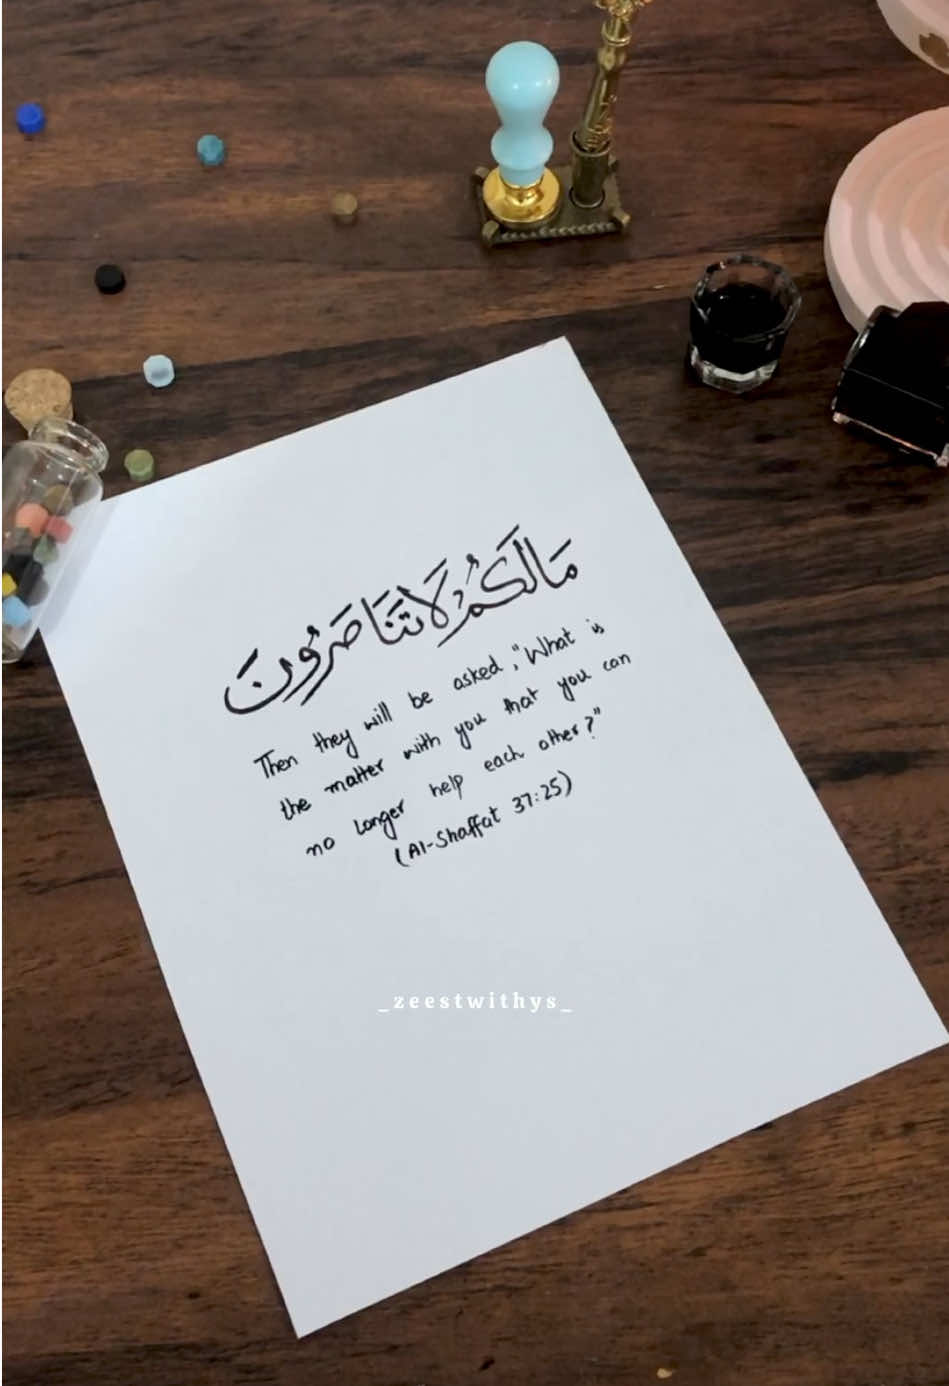 مَالَكُمْ لَا تَنَاصَرُونَ
Then they will be asked, "What is
the matter with you that you can
no longer help each other?"
(Al-Shaffat 37:25)
_zeestwithys_